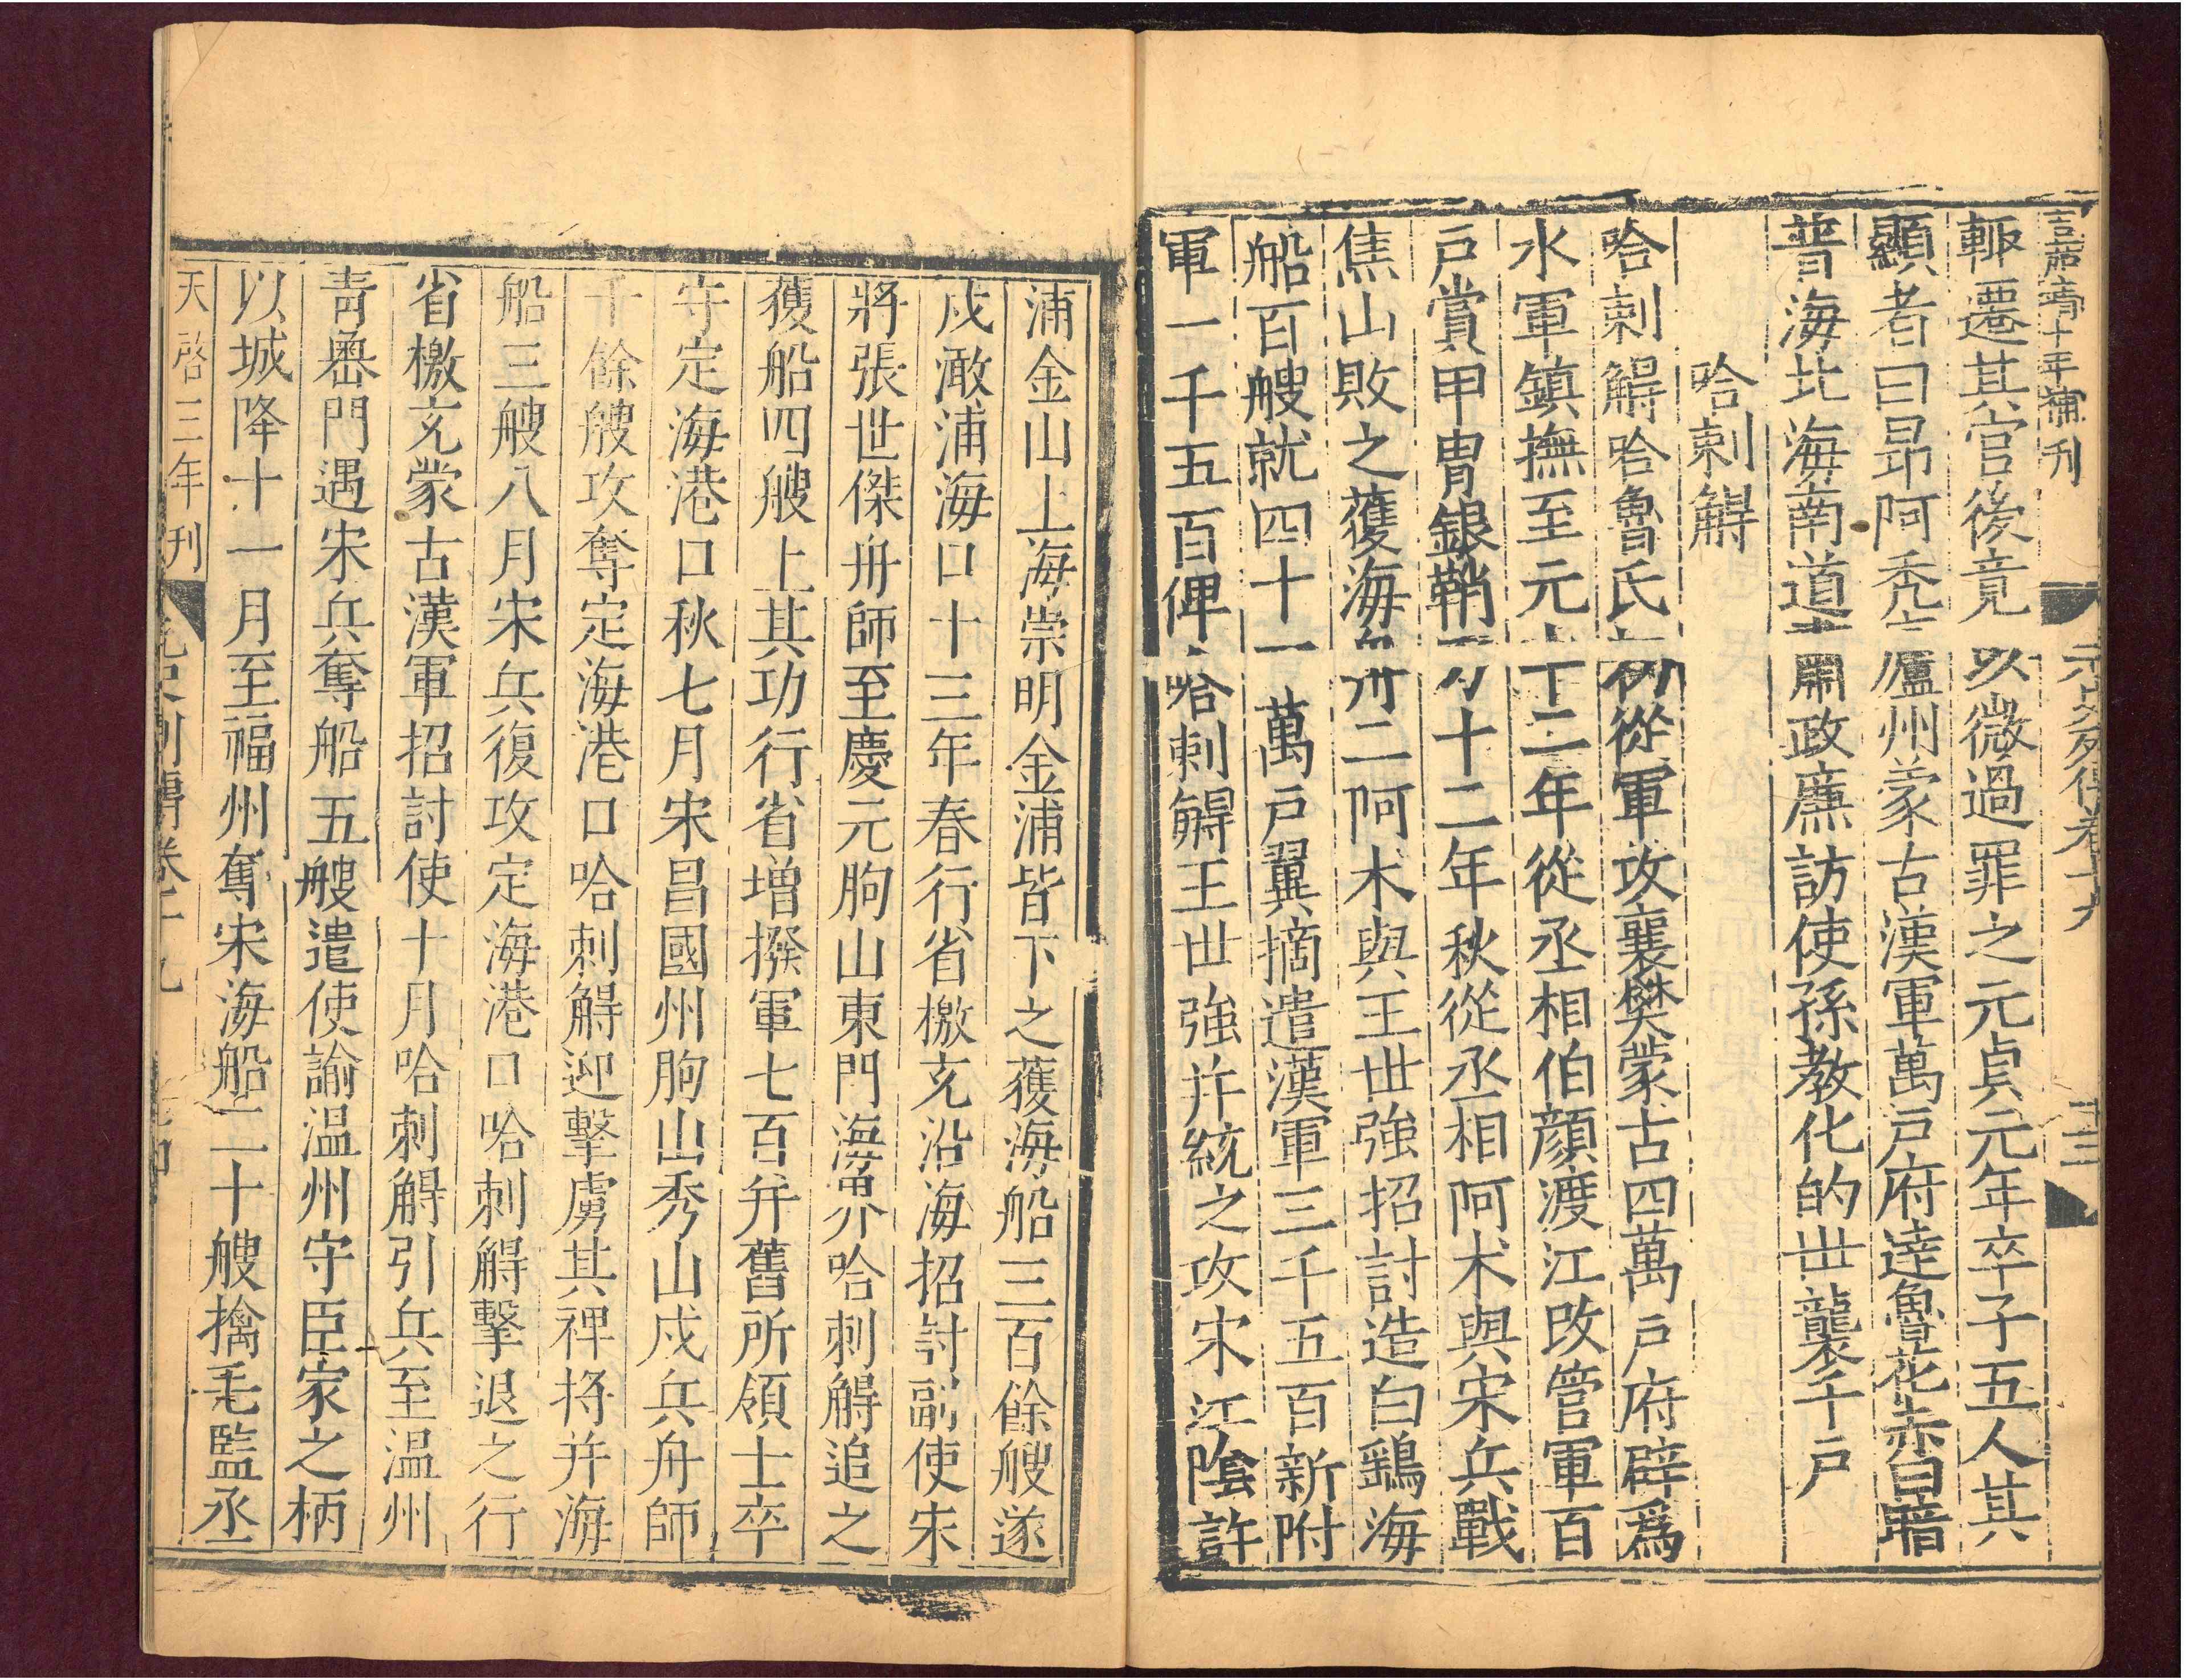 嘉靖十年補刊
元史列傳卷十九
十三
輙遷其官後竟以微過罪之元貞元年卒子五人其
顯者曰昂阿禿廬州蒙古漢軍萬戸府逹魯花赤曰暗
普海北海南道肅政廉訪使孫教化的世襲千戸
哈剌䚟
哈剌䚟哈魯氏初從軍攻襄樊蒙古四萬戸府辟爲
水軍鎮撫至元十二年從丞相伯顔渡江改管軍百
戸賞甲胄銀鞘刀十二年秋從丞相阿术與宋兵戰
焦山敗之獲海舟二阿术與王世強招討造白鷂海
船百艘就四十一萬戸翼摘遣漢軍三千五百新附
軍一千五百俾哈剌䚟王世強并統之攻宋江陰許
浦金山上海崇明金浦皆下之獲海船三百餘艘遂
戍澉浦海口十三年春行省檄充沿海招討副使宋
將張世傑舟師至慶元朐山東門海界哈剌䚟追之
獲船四艘上其功行省增撥軍七百并舊所領士卒
守定海港口秋七月宋昌國州朐山秀山戍兵舟師
千餘艘攻奪定海港口哈剌䚟迎擊虜其裨將并海
船三艘八月宋兵復攻定海港口哈剌䚟擊退之行
省檄充蒙古漢軍招討使十月哈剌䚟引兵至温州
青嶴門遇宋兵奪船五艘遣使諭温州守臣家之柄
以城降十一月至福州奪宋海船二十艘擒毛監丞
天啓三年刊
元史列傳卷十九